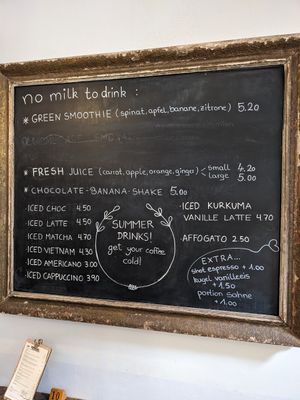 no milk to drink :
* GREEN SMOOTHIE (spinat, apfel, banane, zitrone) 5.20
* FRESH JUICE (carrot, apple, orange, ginga) small 4.20
large 5.00
* CHOCOLATE-BANANA-SHAKE 5.00
ICED CHOC 4.50
ICED LATTE 4.50
ICED MATCHA 4.70
ICED VIETNAM 4.30
ICED AMERICANO 3.00
ICED CAPPUCINO 3.90
SUMMER
DRINKS!
get your coffee
cold!
· ICED KURKUMA
VANILLE LATTE 4.70
· AFFOGATO 2.50
EXTRA...
shot espresso + 1.00
kugel vanilleeis
+ 1.50
portion sahne
+ 1.00
10